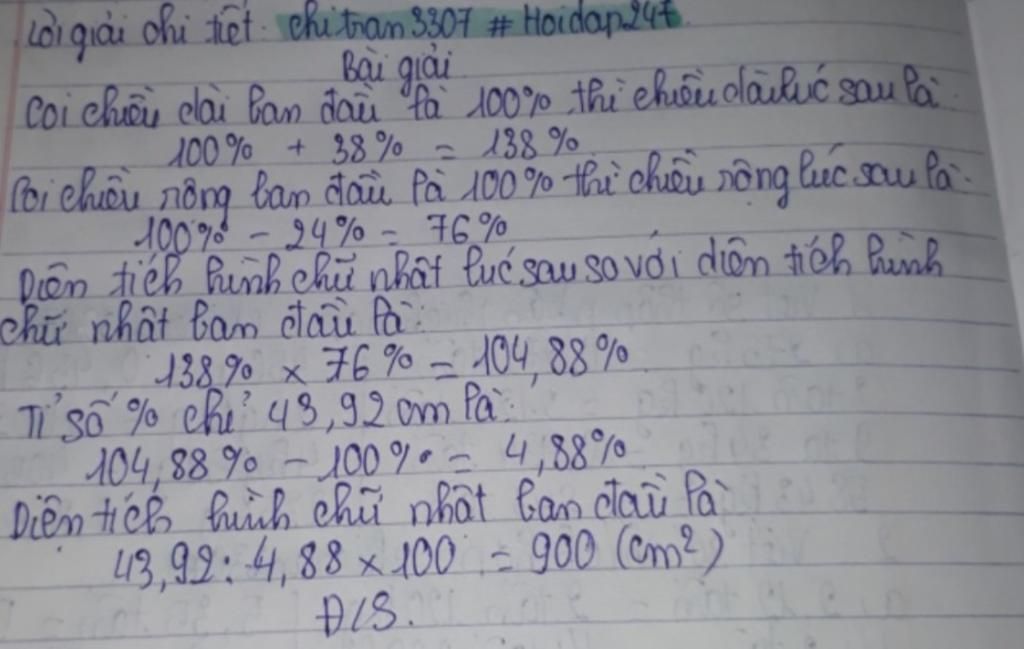 Lời giải chi tiết: chitran3307 # Hoidap247.
Bài giải
Coi chiều dài ban đầu là 100% thì chiều dài lúc sau là:
100% + 38% = 138%
Coi chiều rộng ban đầu là 100% thì chiều rộng lúc sau là:
100% - 24% = 76%
Diện tích hình chữ nhật lúc sau so với diện tích hình
chữ nhật ban đầu là:
138% × 76% = 104,88%
Tỉ số % chỉ 43,92 cm là:
104,88% - 100% = 4,88%
Diện tích hình chữ nhật ban đầu là
43,92 : 4,88 × 100 = 900 (cm²)
Đ/S.